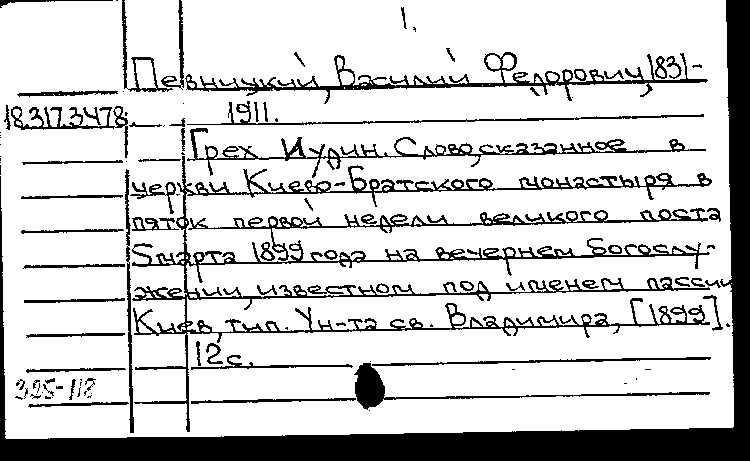 1.
Певницкий, Василий Федорович, 1831-
18.317.3478. 1911.
Грех Иудин. Слово, сказанное в
церкви Киево-Братского монастыря в
пяток первой недели великого поста
5 марта 1899 года на вечернем богослу-
жении, известном под именем пассии
Киев, тип. Ун-та св. Владимира, [1899].
12 с.
325-118